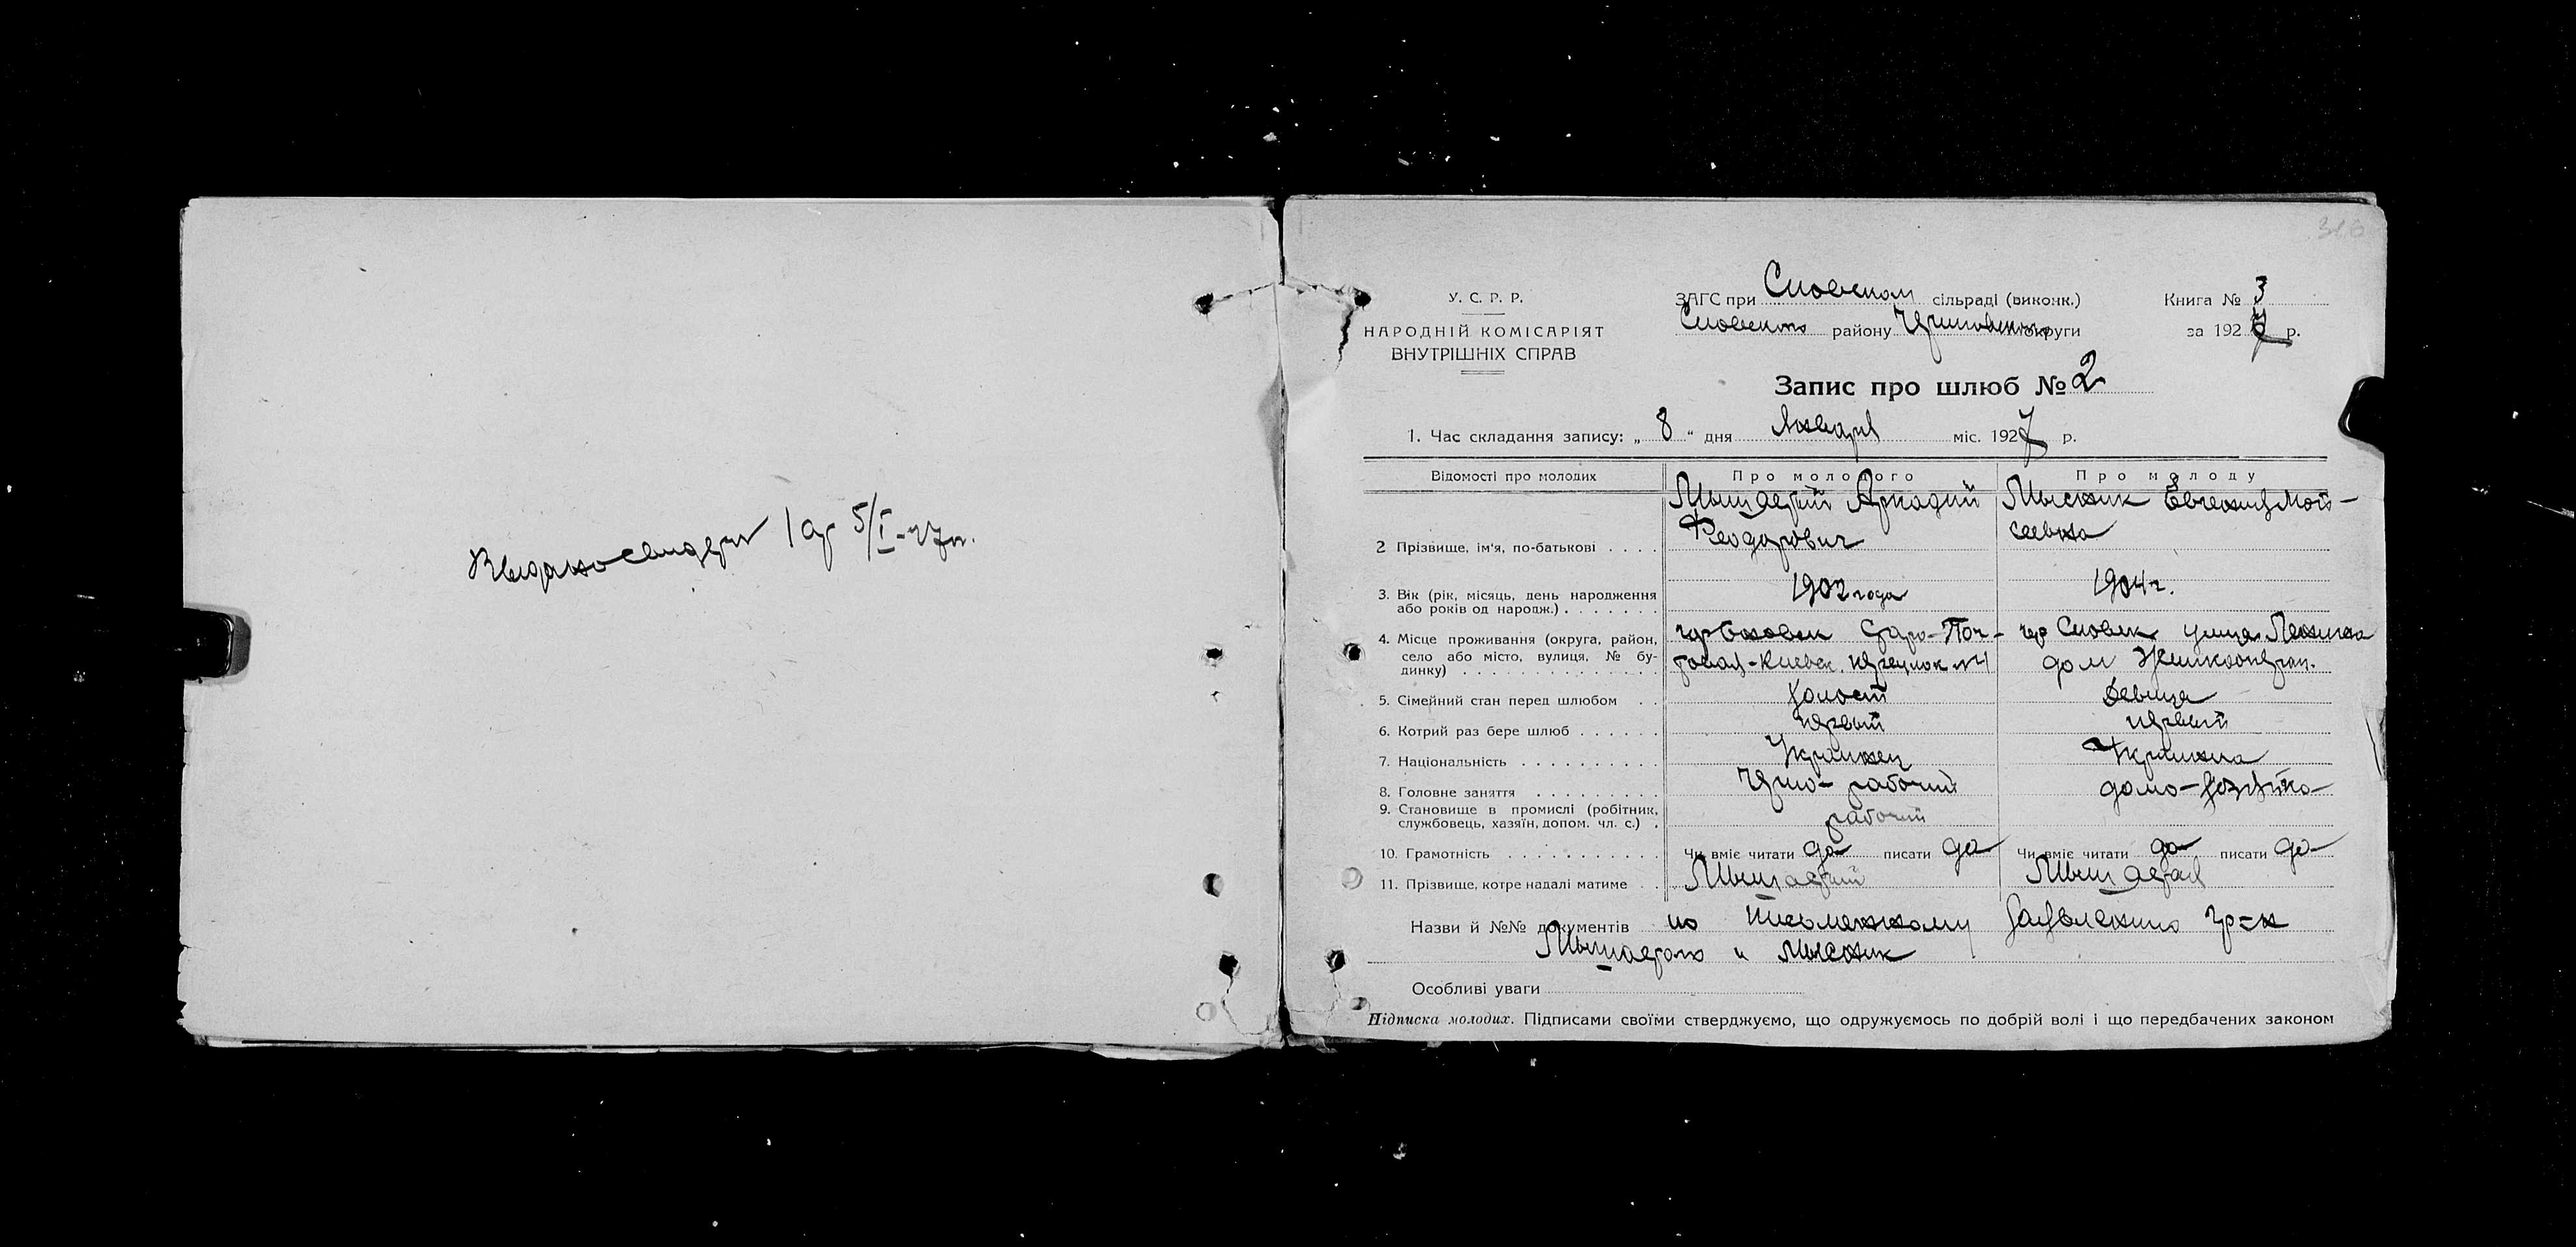 316
У. С. Р. Р.
НАРОДНІЙ КОМІСАРІЯТ
ВНУТРІШНІХ СПРАВ
ЗАГС при Сновском сільраді (виконк.)
Сновского району Черниговского округи
Книга № 3
за 1927 р.
Запис про шлюб № 2
1. Час складання запису: „ 8 “ дня Января міс. 1927 р.
Відомості про молодих Про молодого Про молоду
2 Прізвище, ім'я, по-батькові . . . .
Аркадий
Феодорович
Мысник Евгения Мои-
сеевна
3. Вік (рік, місяць, день народження
або років од народж.) . . . . . . .
1902 года
1904 г.
4. Місце проживання (округа, район,
село або місто, вулиця, № бу-
динку) . . . . . . . . . . . . . .
гор Сновск Старо-Поч-
товая-Киевск. №1
гор Сновск улица Ленина
дом Жилкооперац.
5. Сімейний стан перед шлюбом . . холост девица
6. Котрий раз бере шлюб . . . . . . первый первый
7. Національність . . . . . . . . . . Украинец Украинка
8. Головне заняття . . . . . . . . . Черно-рабочий домо-хозяйка
9. Становище в промислі (робітник,
службовець, хазяїн, допом. чл. с.) .
рабочий
10. Грамотність . . . . . . . . . . . Чи вміє читати да писати да Чи вміє читати да писати да
11. Прізвище, котре надалі матиме . .
Назви й №№ документів по письменному заявлению гр-н
и Мысник
Особливі уваги
Підписка молодих. Підписами своїми стверджуємо, що одружуємось по добрій волі і що передбачених законом
Выдано 5/I-27г.